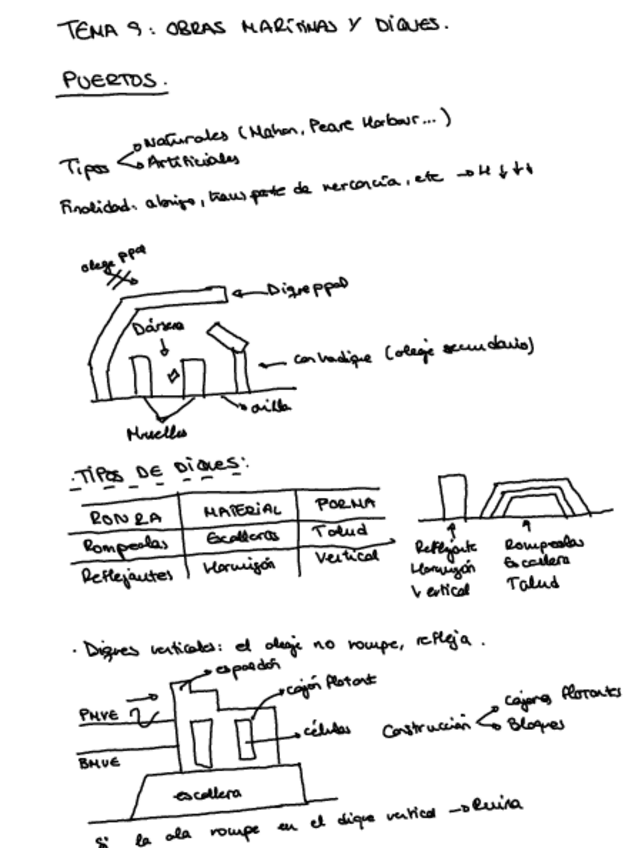 TEMA 9: OBRAS MARÍTIMAS Y DIQUES.
PUERTOS.
Tipos
Naturales (Mahon, Pearl Harbour...)
Artificiales
Finalidad: abrigo, transporte de mercancía, etc → H ↓↓↓
oleaje ppal
Dique ppal
Dársena
Contradique (oleaje secundario)
orilla
Muelles
· TIPOS DE DIQUES:
ROTURA MATERIAL FORMA
Rompeolas Escolleras Talud
Reflejantes Hormigón Vertical
Reflejante
Hormigón
Vertical
Rompeolas
Escollera
Talud
· Diques verticales: el oleaje no rompe, refleja.
espaldón
cajón flotante
PMVE
células
Construcción
Cajones flotantes
Bloques
BMVE
escollera
Si la ola rompe en el dique vertical → Ruina